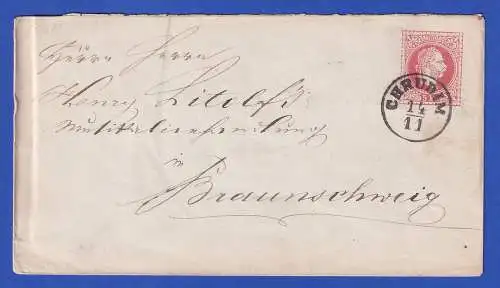 Herrn Herrn
Henry Litolff's
Musikalienhandlung
in
Braunschweig
CHRUDIM
14
11